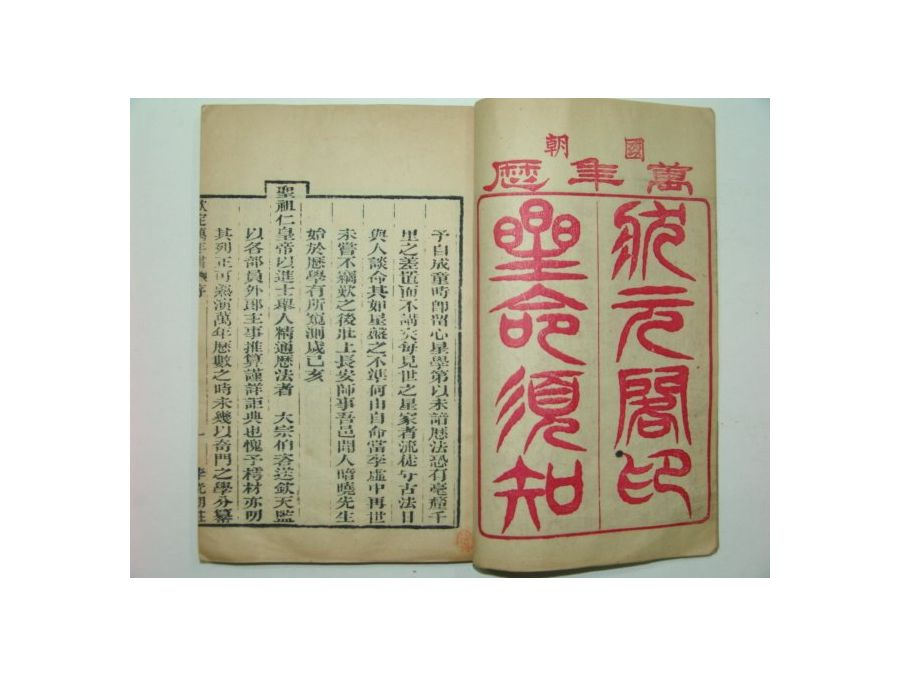 國朝
萬年曆
狀元閣印
星命須知
予自成童時卽留心星學第以未諳歷法恐有毫釐千
里之差置而不講矣每見世之星家者流徒守古法日
與人談命其如星盤之不準何由自命當李虛中再世
未嘗不竊歎之後壯上長安師事吾邑聞人暗曉先生
始於歷學有所窺測歲己亥
聖祖仁皇帝以進士舉人精通歷法者 大宗伯咨送欽天監
以各部員外郎主事推算謹詳詎典也愧予樗材亦明
其列正可熟演萬年歷數之時未幾以奇門之學分纂
欽定萬年書 序 一